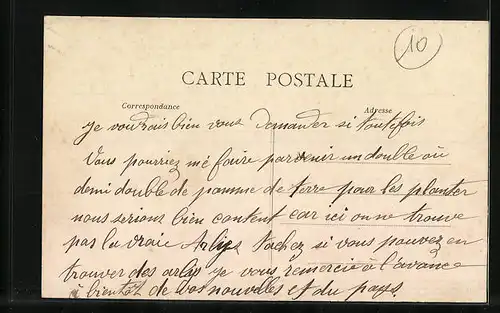 10
CARTE POSTALE
Correspondance
Adresse
je voudrais bien vous demander si toutefois
Vous pourriez me faire parvenir un double ou
demi double de pomme de terre pour les planter
nous serions bien content car ici on ne trouve
pas la vraie Arlys tachez si vous pouvez en
trouver des arlys je vous remercie à l'avance
à bientot de vos nouvelles et du pays.